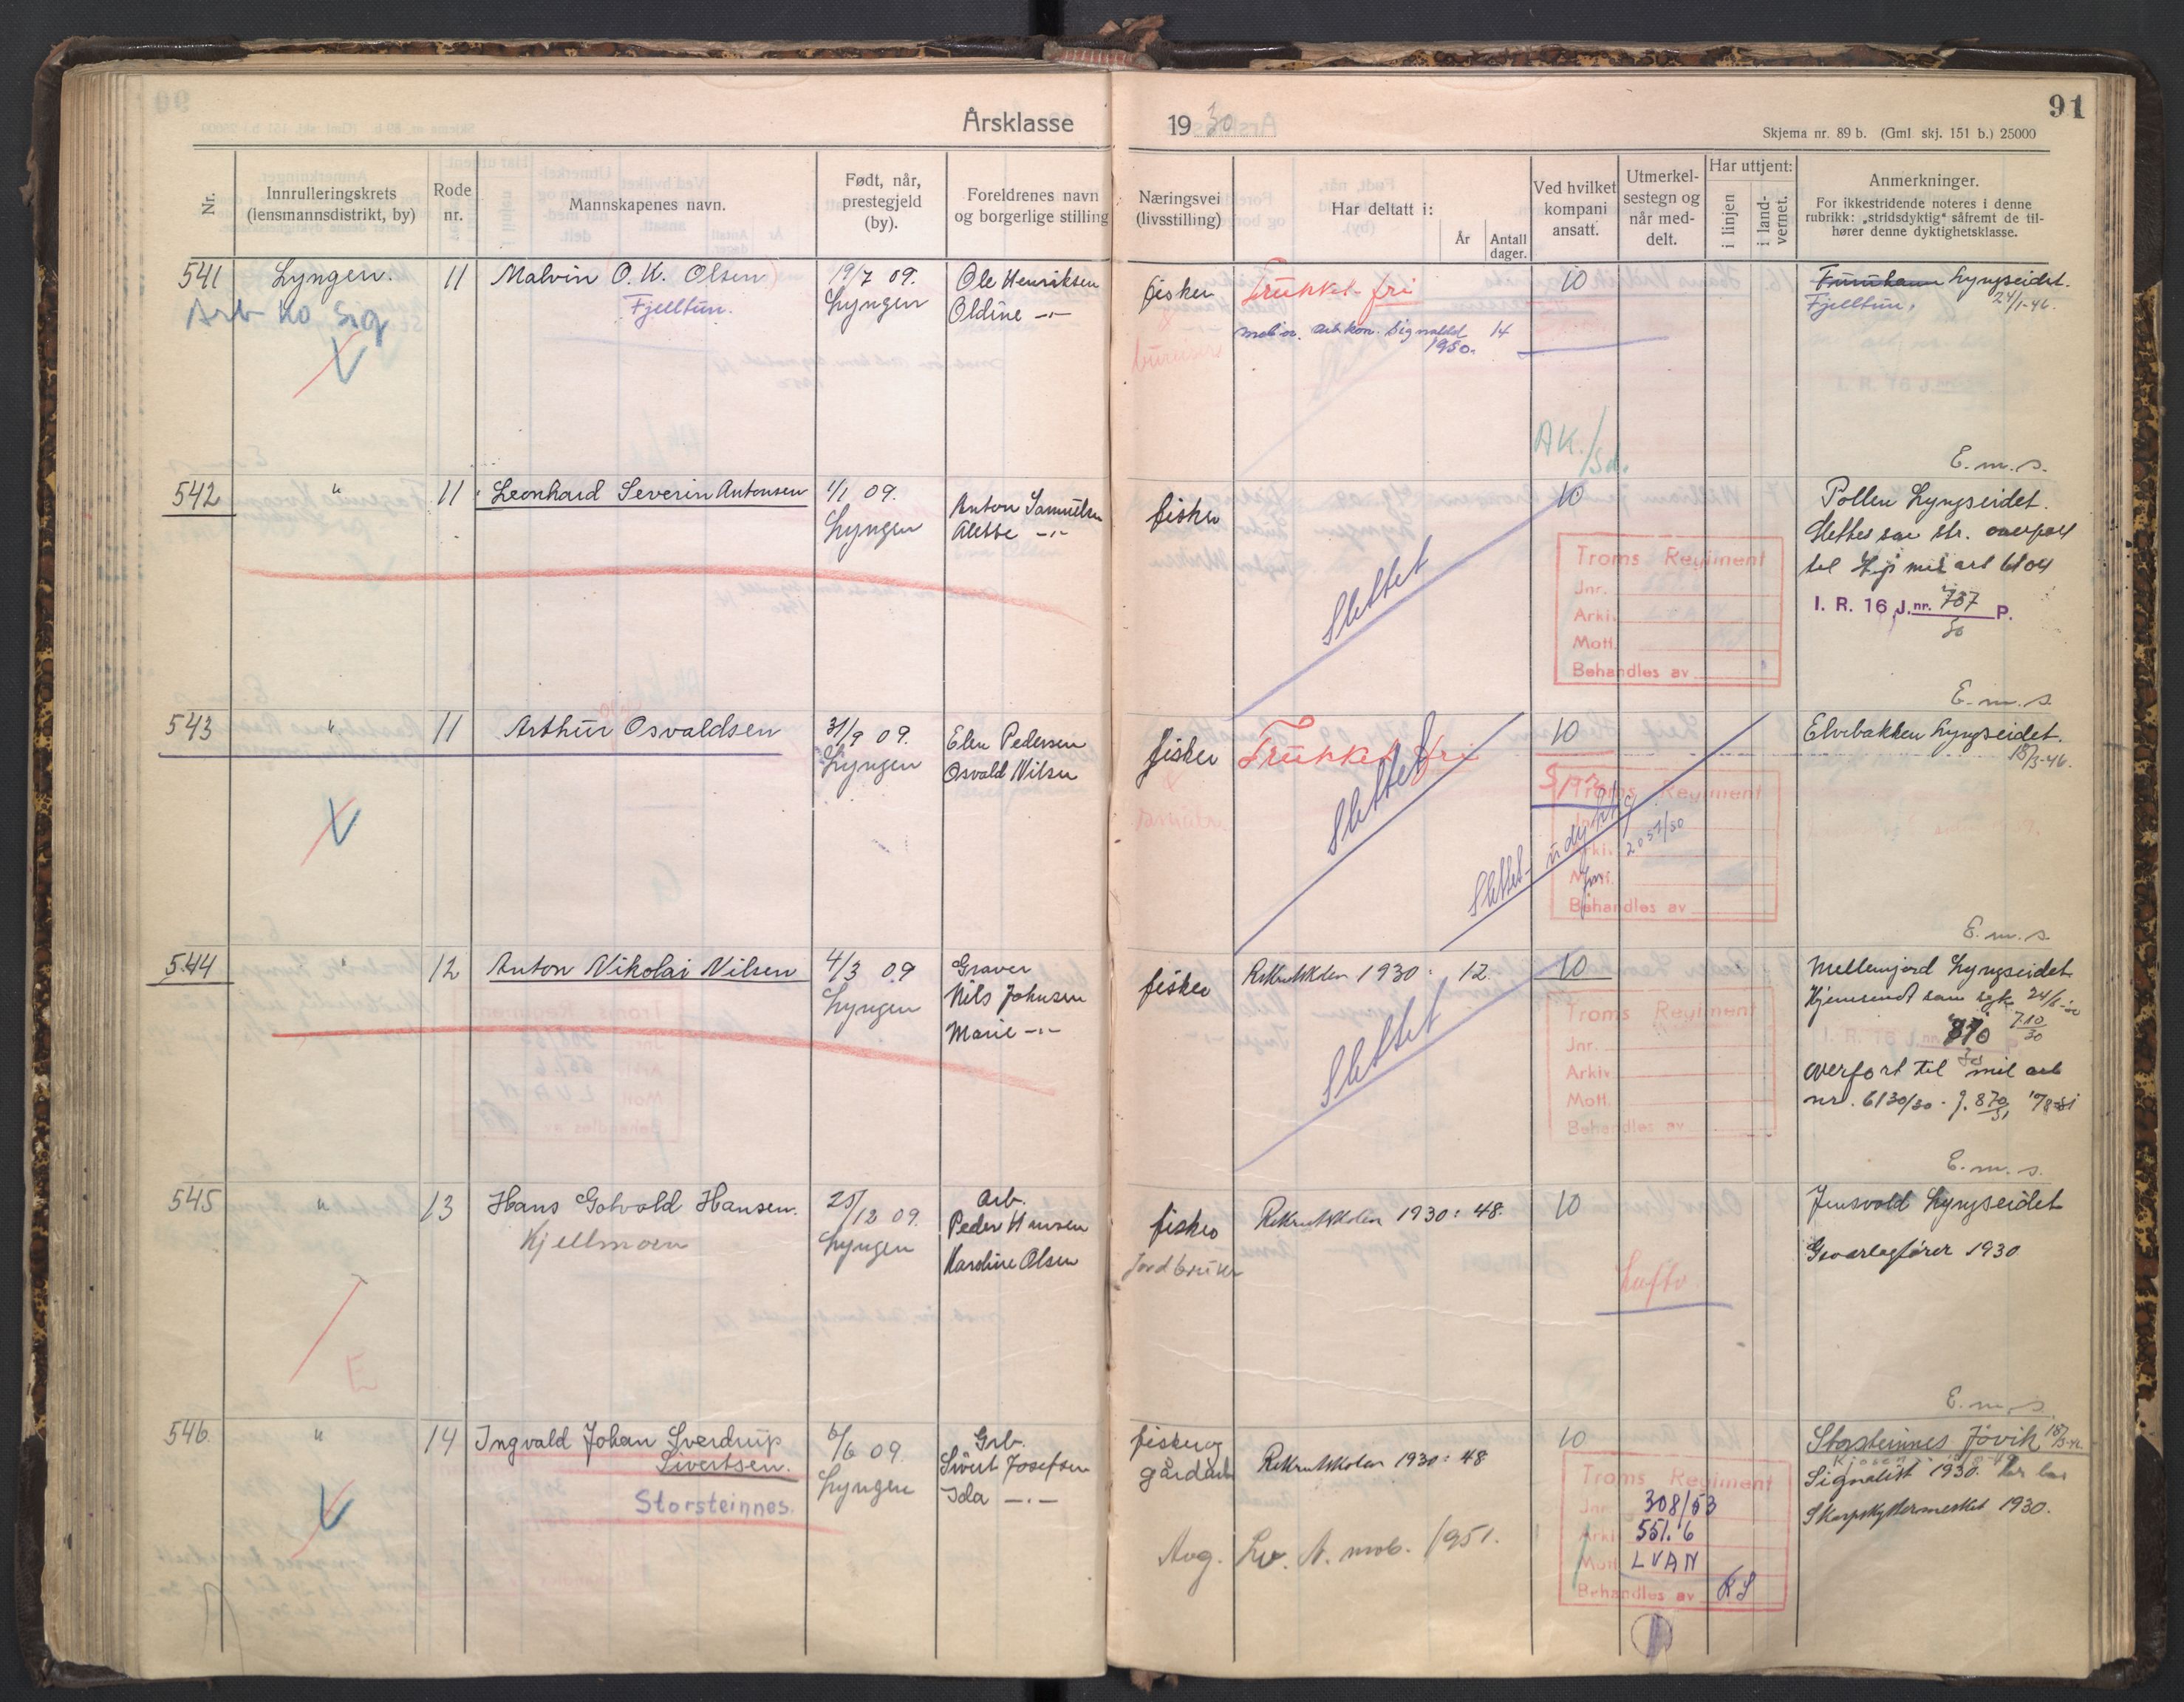 Årsklasse 1930
91
Skjema nr. 89 b. (Gml. skj. 151 b.) 25000
Nr.
Innrulleringskrets (lensmannsdistrikt, by)
Rode nr.
Mannskapenes navn.
Født, når, prestegjeld (by).
Foreldrenes navn og borgerlige stilling
Næringsvei (livsstilling)
Har deltatt i:
År
Antall dager.
Ved hvilket kompani ansatt.
Utmerkelsestegn og når meddelt.
Har uttjent:
i linjen
i landvernet.
Anmerkninger.
For ikkestridende noteres i denne rubrikk: „stridsdyktig“ såfremt de tilhører denne dyktighetsklasse.
541 Lyngen. 11 Malvin O. K. Olsen 19/7 09. Ole Henriksen
Fjelltun. Lyngen Oldine -"-
Arb Ko Sig
V
fisker Trukket fri 10 Lyngseidet.
24/1-46.
Fjelltun.
1950. 14
AK./Sd.
E.m.s.
542 " 11 Leonhard Severin Antonsen 1/1 09. Anton Samuelsen
Lyngen -"-
fisker 10 Pollen Lyngseidet.
Slettet
til mil arb 61 04
I. R. 16 J.nr. 737 P.
30
Troms Regiment
Jnr.
Arkiv
Mott.
Behandles av
E.m.s.
543 " 11 Arthur Osvaldsen 31/9 09. Elen Pedersen
Lyngen Osvald Nilsen
V
fisker Trukket fri 10 Elvebakken Lyngseidet.
18/3-46.
Slettet
Slettet - udyktig
2051/50
Troms Regiment
Jnr.
Arkiv
Mott.
Behandles av
E.m.s.
544 " 12 Anton Nikolai Nilsen 4/3 09 Graver
Lyngen Nils Johnsen
Marie -"-
fisker Rekrutskolen 1930: 12. 10 Lyngseidet
Hjemsendt som syk 24/6-30
I. R. 16 J.nr. 870 P
overført til mil arb
nr. 6130/30 - J. 870/31
Slettet
Troms Regiment
Jnr.
Arkiv
Mott.
Behandles av
E.m.s.
545 " 13 Hans Gotvald Hansen. 25/12 09. Arb.
Kjellmoen Lyngen Peder Hansen
Karoline Olsen
E
fisker Rekrutskolen 1930: 48. 10 Jensvold Lyngseidet
Jordbruker
Geværlagfører 1930
Luftv
E.m.s.
546. " 14 Ingvald Johan Sverdrup 6/6 09. Grb.
Sivertsen. Lyngen Sivert Josefsen
Storsteinnes. Ida -"-
V
fisker og gårdarb Rekrutskolen 1930: 48 10 Storsteinnes Jövik
Signalist 1930.
Skarpskyttermerket 1930.
Avg. Lv. A. mob. 1951.
Troms Regiment
Jnr. 308/53
Arkiv 551.6
Mott. LVAN
Behandles av RS